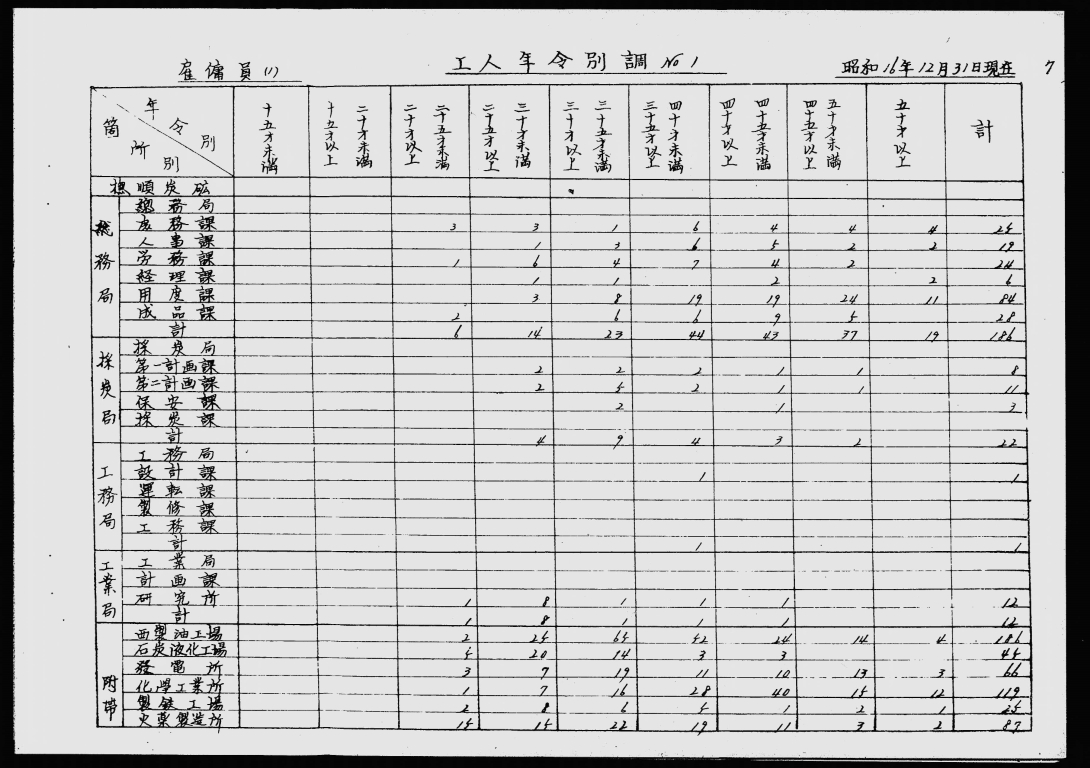 雇傭員(1) 工人年令別調 No 1 昭和16年12月31日現在 7
年令別 箇所別 十五才未満 十五才以上二十才未満 二十才以上二十五才未満 二十五才以上三十才未満 三十才以上三十五才未満 三十五才以上四十才未満 四十才以上四十五才未満 四十五才以上五十才未満 五十才以上 計
撫順炭砿
総務局
總務局
庶務課 3 3 1 6 4 4 4 25
人事課 1 3 6 5 2 2 19
労務課 1 6 4 7 4 2 24
経理課 1 1 2 2 6
用度課 3 8 19 19 24 11 84
成品課 2 6 6 9 5 28
計 6 14 23 44 43 37 19 186
採炭局
採炭局
第一計画課 2 2 2 1 1 8
第二計画課 2 5 2 1 1 11
保安課 2 1 3
採炭課
計 4 9 4 3 2 22
工務局
工務局
設計課 1 1
運転課
製修課
工務課
計 1 1
工業局
工業局
計画課
研究所 1 8 1 1 1 12
計 1 8 1 1 1 12
附帯
西製油工場 2 25 65 52 24 14 4 186
石炭液化工場 5 20 14 3 3 45
發電所 3 7 19 11 10 13 3 66
化學工業所 1 7 16 28 40 15 12 119
製鉄工場 2 8 6 5 1 2 1 25
火薬製造所 15 15 22 19 11 3 2 87